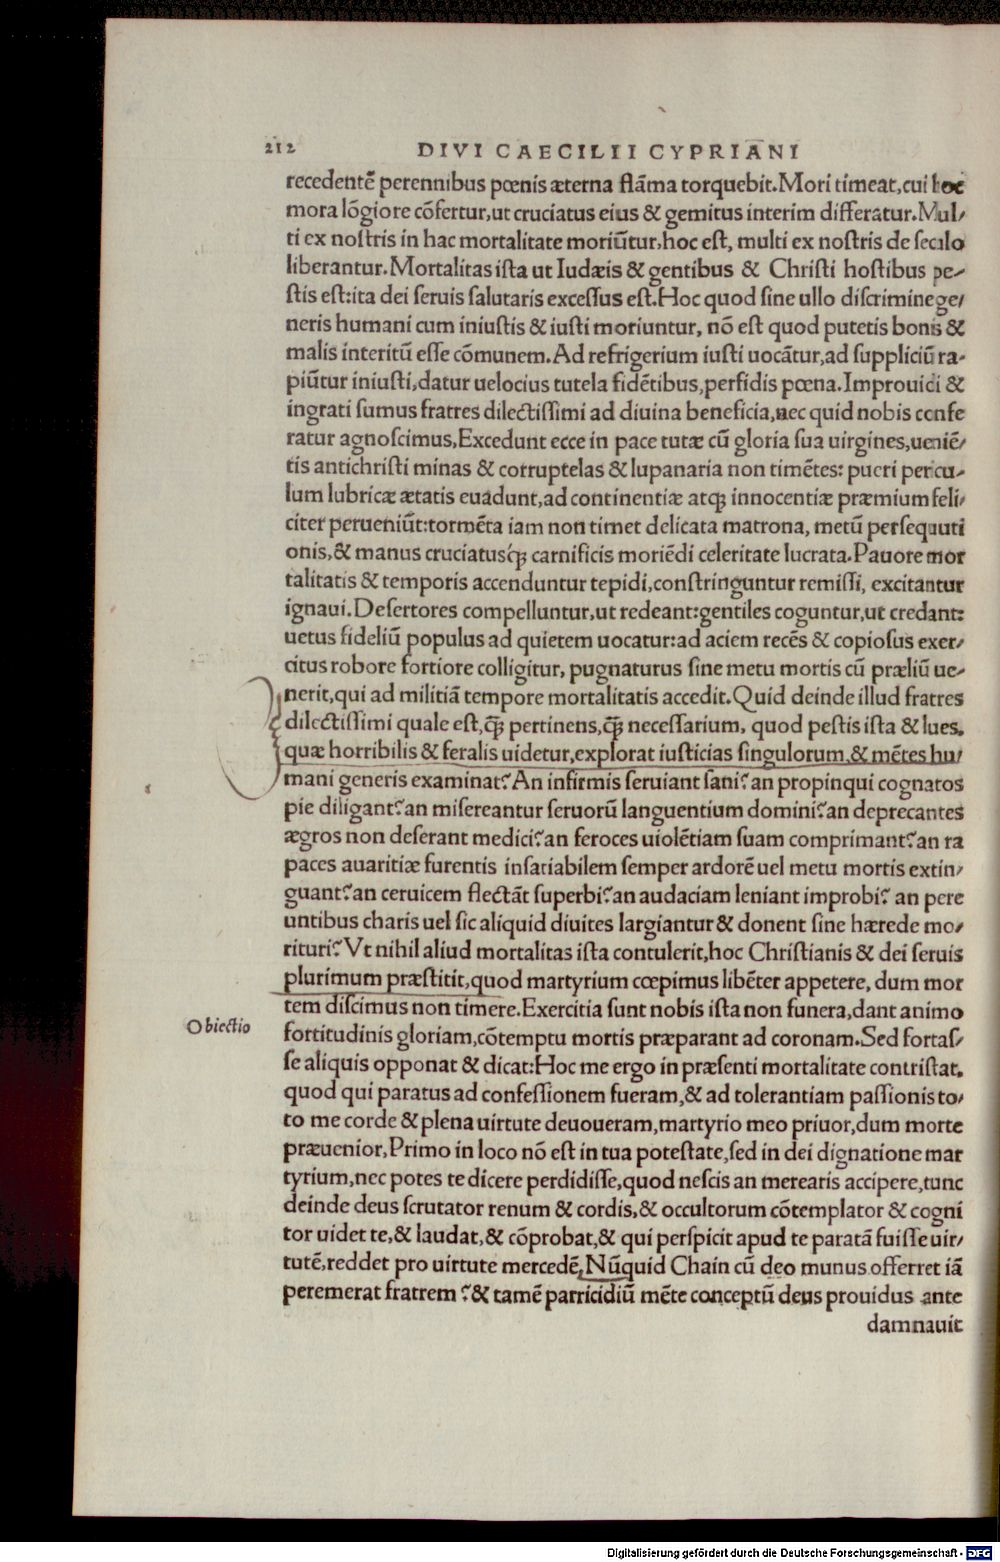 212 DIVI CAECILII CYPRIANI
recedentē perennibus pœnis æterna flāma torquebit.Mori timeat,cui hoc
mora lōgiore cōfertur,ut cruciatus eius & gemitus interim differatur.Mul/
ti ex noſtris in hac mortalitate moriūtur,hoc eſt, multi ex noſtris de ſeculo
liberantur.Mortalitas iſta ut Iudæis & gentibus & Chriſti hoſtibus pe/
ſtis eſt:ita dei ſeruis ſalutaris exceſſus eſt.Hoc quod ſine ullo diſcrimine ge/
neris humani cum iniuſtis & iuſti moriuntur, nō eſt quod putetis bonis &
malis interitū eſſe cōmunem.Ad refrigerium iuſti uocātur,ad ſuppliciū ra-
piūtur iniuſti,datur uelocius tutela fidētibus,perfidis pœna.Improuidi &
ingrati ſumus fratres dilectiſſimi ad diuina beneficia,nec quid nobis confe
ratur agnoſcimus,Excedunt ecce in pace tutæ cū gloria ſua uirgines,ueniē/
tis antichriſti minas & corruptelas & lupanaria non timētes: pueri pericu-
lum lubricæ ætatis euadunt,ad continentiæ atqꝫ innocentiæ præmium feli/
citer perueniūt:tormēta iam non timet delicata matrona, metū perſequuti
onis,& manus cruciatusq́ꝫ carnificis moriēdi celeritate lucrata.Pauore mor
talitatis & temporis accenduntur tepidi,conſtringuntur remiſſi, excitantur
ignaui.Deſertores compelluntur,ut redeant:gentiles coguntur,ut credant:
uetus fideliū populus ad quietem uocatur:ad aciem recēs & copioſus exer/
citus robore fortiore colligitur, pugnaturus ſine metu mortis cū præliū ue-
nerit,qui ad militiā tempore mortalitatis accedit.Quid deinde illud fratres
dilectiſſimi quale eſt,q̄ꝫ pertinens,q̄ꝫ neceſſarium, quod peſtis iſta & lues,
quæ horribilis & feralis uidetur,explorat iuſticias ſingulorum,& mētes hu/
mani generis examinat? An infirmis ſeruiant ſani? an propinqui cognatos
pie diligant? an miſereantur ſeruorū languentium domini? an deprecantes
ægros non deſerant medici? an feroces uiolētiam ſuam comprimant? an ra
paces auaritiæ furentis inſatiabilem ſemper ardorē uel metu mortis extin/
guant? an ceruicem flectāt ſuperbi? an audaciam leniant improbi? an pere
untibus charis uel ſic aliquid diuites largiantur & donent ſine hærede mo/
rituri? Vt nihil aliud mortalitas iſta contulerit,hoc Chriſtianis & dei ſeruis
plurimum præſtitit,quod martyrium cœpimus libēter appetere, dum mor
tem diſcimus non timere.Exercitia ſunt nobis iſta non funera,dant animo
Obiectio
fortitudinis gloriam,cōtemptu mortis præparant ad coronam.Sed fortaſ/
ſe aliquis opponat & dicat:Hoc me ergo in præſenti mortalitate contriſtat,
quod qui paratus ad confeſſionem fueram,& ad tolerantiam paſſionis to/
to me corde & plena uirtute deuoueram,martyrio meo priuor,dum morte
præuenior,Primo in loco nō eſt in tua poteſtate,ſed in dei dignatione mar
tyrium,nec potes te dicere perdidiſſe,quod neſcis an merearis accipere,tunc
deinde deus ſcrutator renum & cordis,& occultorum cōtemplator & cogni
tor uidet te,& laudat,& cōprobat,& qui perſpicit apud te paratā fuiſſe uir/
tutē,reddet pro uirtute mercedē,Nūquid Chain cū deo munus offerret iā
peremerat fratrem ? & tamē parricidiū mēte conceptū deus prouidus ante
damnauit
Digitalisierung gefördert durch die Deutsche Forschungsgemeinschaft - DFG